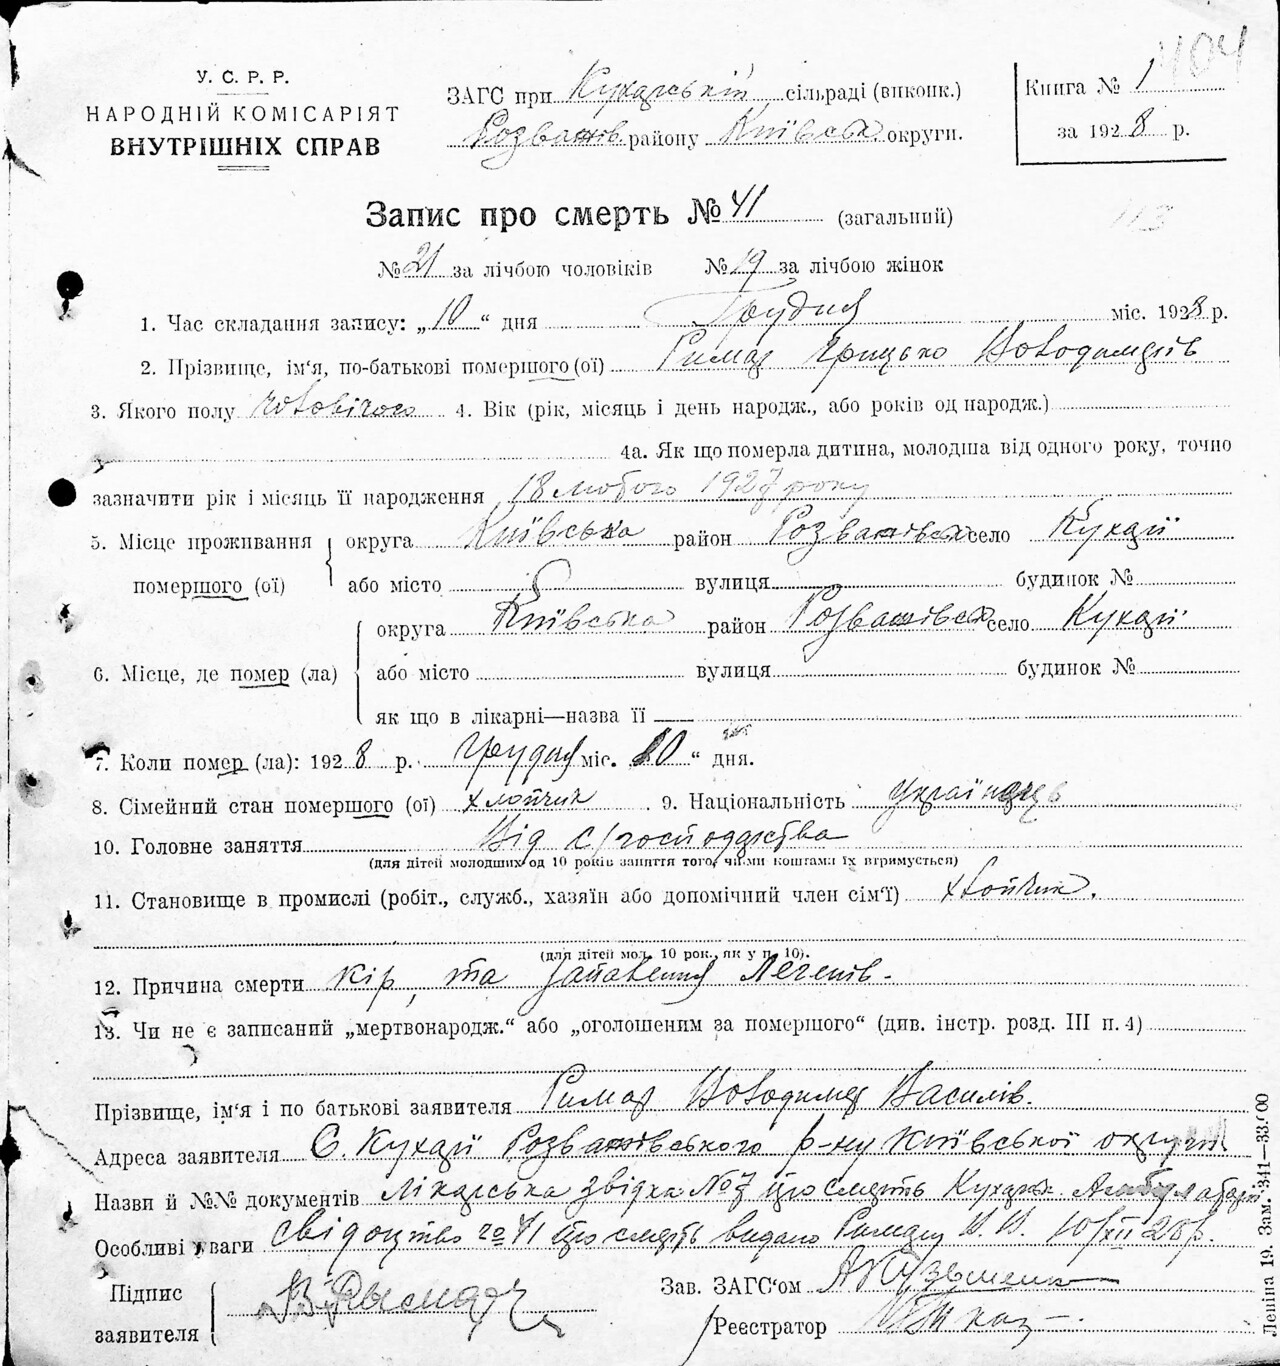 404
У. С. Р. Р.
НАРОДНІЙ КОМІСАРІЯТ
ВНУТРІШНІХ СПРАВ
ЗАГС при Кухарській сільраді (виконк.)
Розважів району Київськ округи.
Книга № 1
за 1928 р.
Запис про смерть № 41 (загальний)
113
№ 21 за лічбою чоловіків № 19 за лічбою жінок
1. Час складання запису: „10“ дня Грудня міс. 1928 р.
2. Прізвище, ім'я, по-батькові помершого (ої) Римар Грицько Володимирів
3. Якого полу чоловічого 4. Вік (рік, місяць і день народж., або років од народж.)
4а. Як що померла дитина, молодша від одного року, точно
зазначити рік і місяць її народження 18 лютого 1927 року
5. Місце проживання помершого (ої) округа Київська район Розважівськ село Кухарі
або місто вулиця будинок №
6. Місце, де помер (ла) округа Київська район Розважівськ село Кухарі
або місто вулиця будинок №
як що в лікарні—назва її
7. Коли помер (ла): 1928 р. Грудня міс. 10 “ дня.
8. Сімейний стан помершого (ої) хлопчик 9. Національність Українець
10. Головне заняття Від с/господарства
(для дітей молодших од 10 років заняття того, чиїми коштами їх втримується)
11. Становище в промислі (робіт., служб., хазяїн або допомічний член сім'ї) хлопчик.
(для дітей мол. 10 рок., як у п. 10).
12. Причина смерти кір, та запалення Легенів.
13. Чи не є записаний „мертвонародж.“ або „оголошеним за помершого“ (див. інстр. розд. III п. 4)
Прізвище, ім'я і по батькові заявителя Римар Володимир Василів.
Адреса заявителя С. Кухарі Розважівського р-ну Київської округи
Назви й №№ документів Лікарська звідка № 7 про смерть Кухарськ.
Особливі уваги свідоцтво № 41 про смерть видано Римару В. В. 10/XII 28 р.
Підпис заявителя
Зав. ЗАГС'ом А Кузьменко
Реєстратор
Леніна 19. Зам. 341—33.000